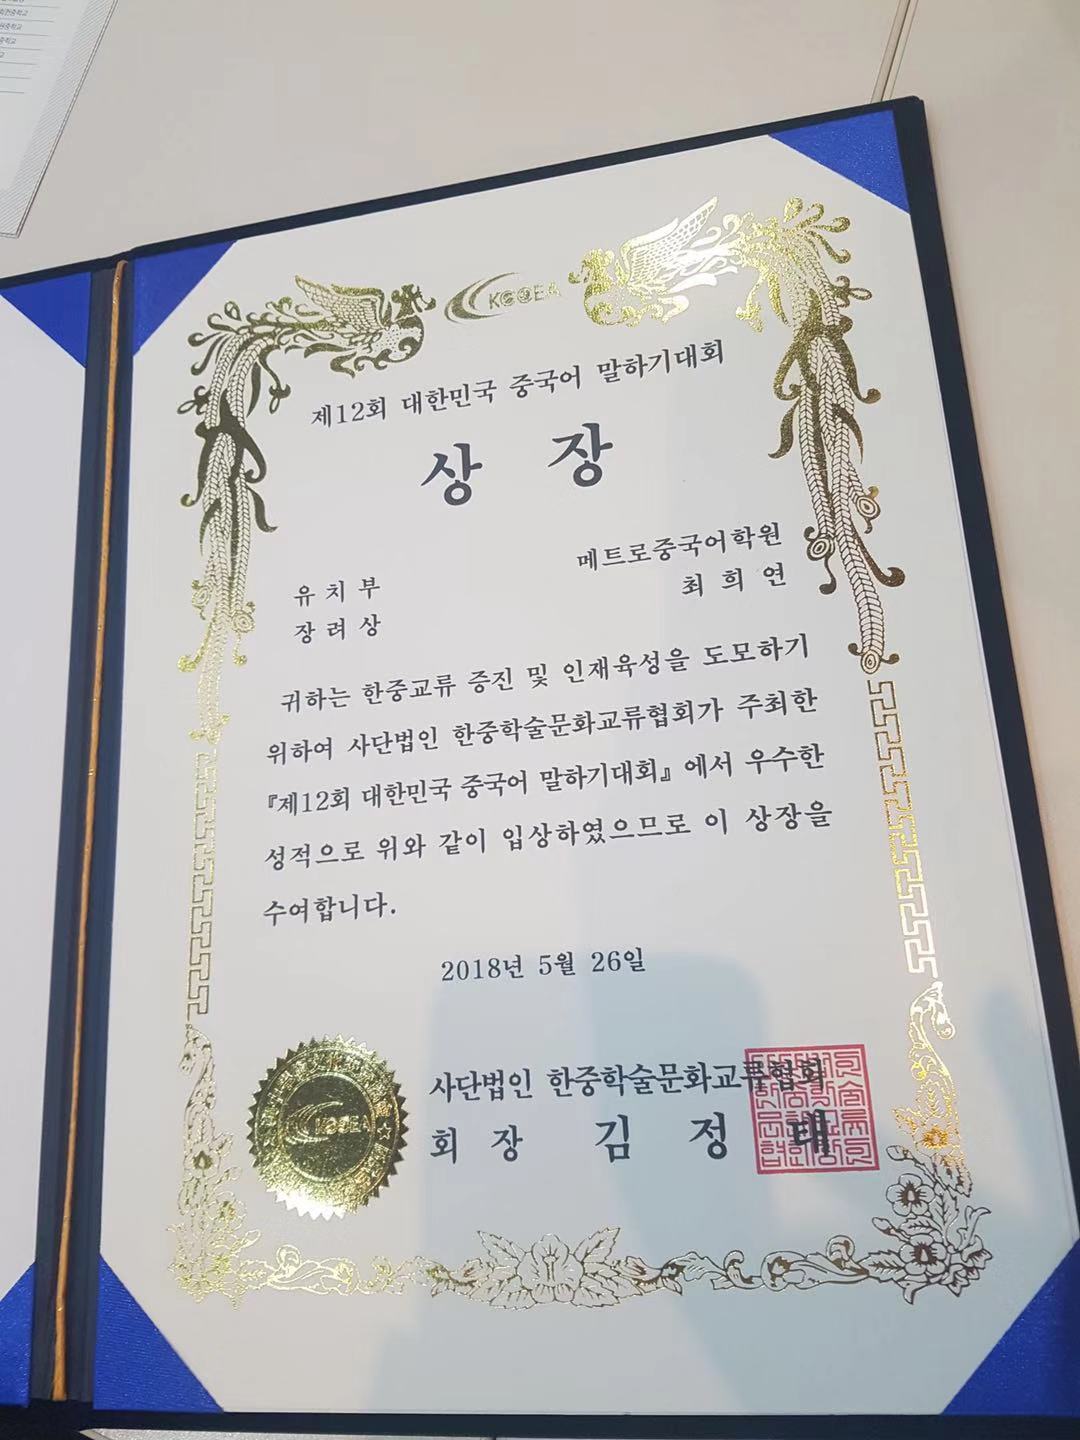 중학교
KCCEA
제12회 대한민국 중국어 말하기대회
상 장
메트로중국어학원
최 희 연
유 치 부
장 려 상
귀하는 한중교류 증진 및 인재육성을 도모하기
위하여 사단법인 한중학술문화교류협회가 주최한
『제12회 대한민국 중국어 말하기대회』에서 우수한
성적으로 위와 같이 입상하였으므로 이 상장을
수여합니다.
2018년 5월 26일
사단법인 한중학술문화교류협회
회 장 김 정 태